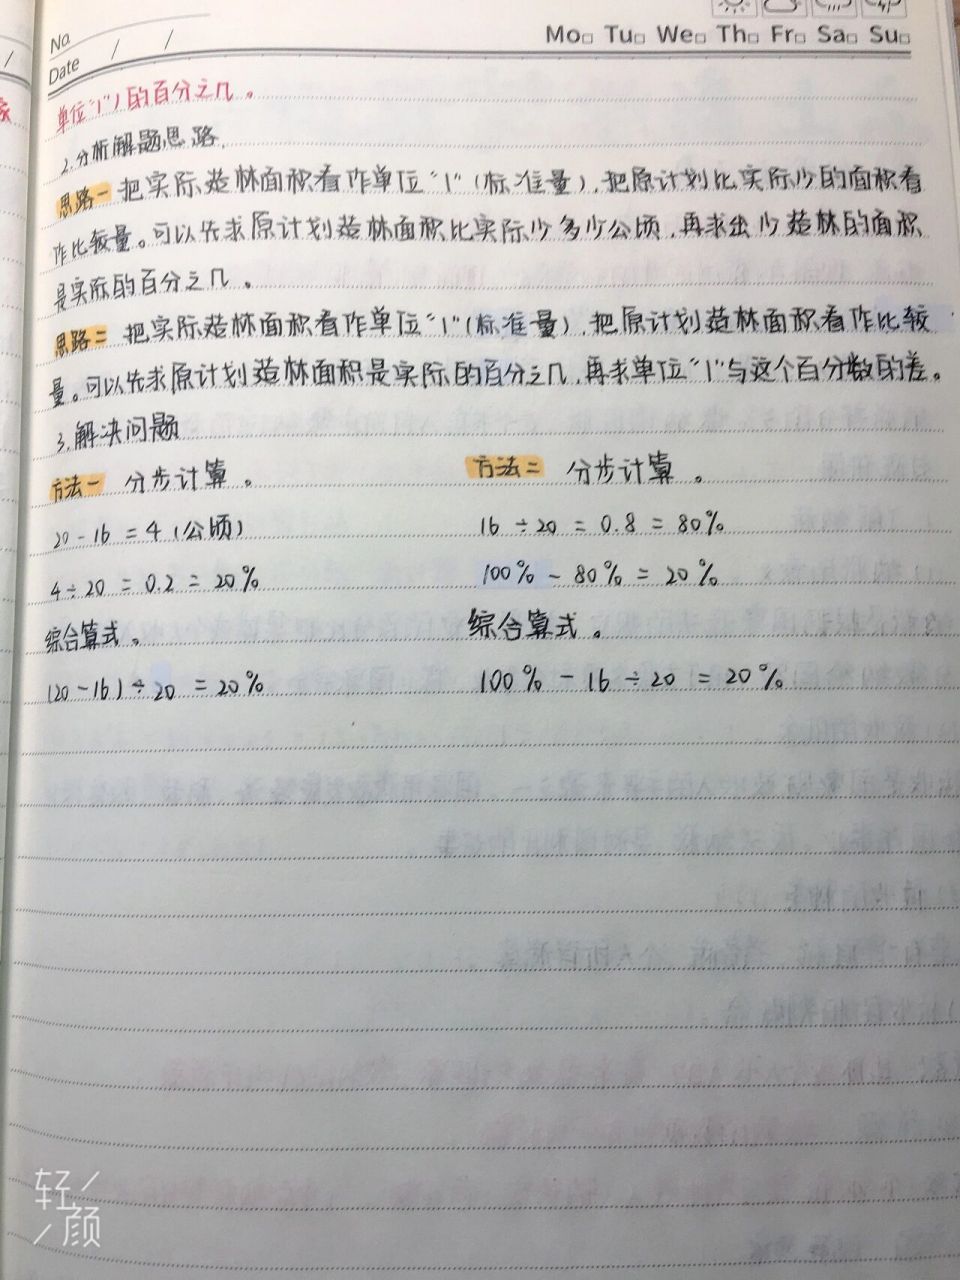 No.
Date / /
Mo Tu We Th Fr Sa Su
单位"1")的百分之几。
2.分析解题思路.
思路一 把实际造林面积看作单位"1"(标准量),把原计划比实际少的面积看
作比较量。可以先求原计划造林面积比实际少多少公顷,再求出少造林的面积
是实际的百分之几。
思路二 把实际造林面积看作单位"1"(标准量),把原计划造林面积看作比较
量。可以先求原计划造林面积是实际的百分之几,再求单位"1"与这个百分数的差。
3.解决问题
方法一 分步计算。 方法二 分步计算。
20-16=4(公顷) 16÷20=0.8=80%
4÷20=0.2=20% 100%-80%=20%
综合算式。 综合算式。
(20-16)÷20=20% 100%-16÷20=20%
轻
颜